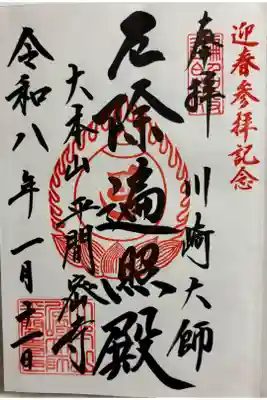 迎春参拝記念
奉拝
川崎大師
厄除遍照殿
大本山平間密寺
令和八年一月十一日